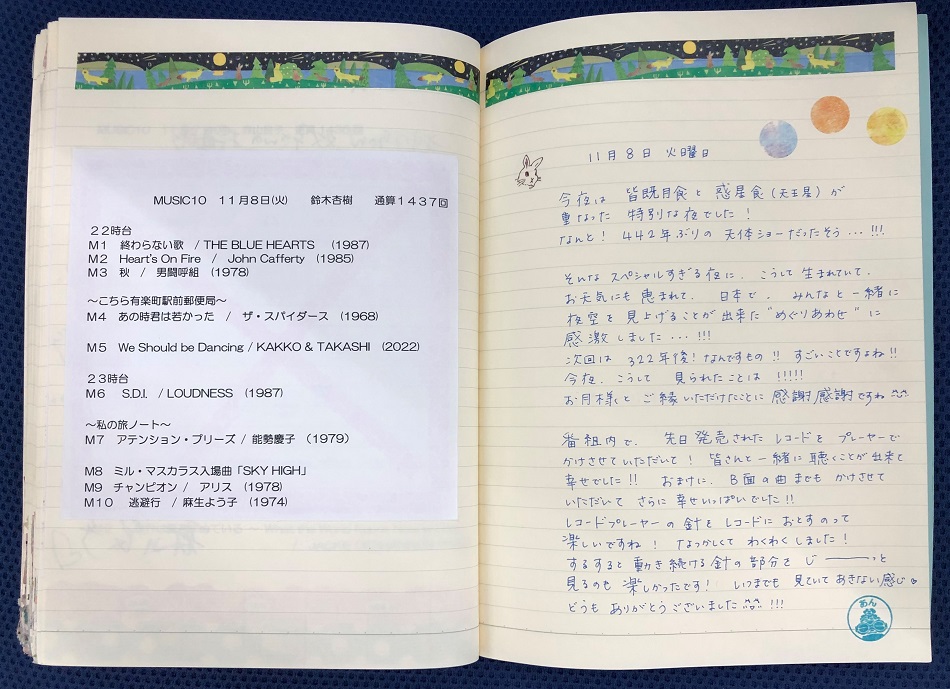 MUSIC10　11月8日(火)　鈴木杏樹　通算1437回
22時台
M1　終わらない歌　/ THE BLUE HEARTS　(1987)
M2　Heart's On Fire　/　John Cafferty　(1985)
M3　秋　/　男闘呼組　(1978)
～こちら有楽町駅前郵便局～
M4　あの時君は若かった　/　ザ・スパイダース　(1968)
M5　We Should be Dancing / KAKKO & TAKASHI　(2022)
23時台
M6　S.D.I.　/ LOUDNESS　(1987)
～私の旅ノート～
M7　アテンション・プリーズ / 能勢慶子　(1979)
M8　ミル・マスカラス入場曲「SKY HIGH」
M9　チャンピオン /　アリス　(1978)
M10　逃避行　/ 麻生よう子　(1974)
11月8日　火曜日
今夜は　皆既月食と惑星食(天王星)が
重なった　特別な夜でした!
なんと! 442年ぶりの　天体ショーだったそう…!!!
そんな スペシャルすぎる夜に、こうして 生まれていて、
お天気にも 恵まれて、日本で、みんなと一緒に
夜空を見上げることが出来た"めぐりあわせ"に
感激しました…!!!
次回は 322年後! なんですもの!! すごいことですよね!!
今夜、こうして 見られたことは !!!!!
お月様と ご縁いただけたことに 感謝感謝ですね
番組内で、先日発売された レコードを プレーヤーで
かけさせていただいて! 皆さんと一緒に聴くことが出来て
幸せでした!! おまけに、B面の曲までも かけさせて
いただいて さらに 幸せいっぱいでした!!
レコードプレーヤーの 針を レコードに おとすのって
楽しいですね! なつかしくて わくわくしました!
するすると 動き続ける 針の部分を じーーーっと
見るのも 楽しかったです! いつまでも 見ていて あきない感じ♥
どうも ありがとうございました !!!
あん